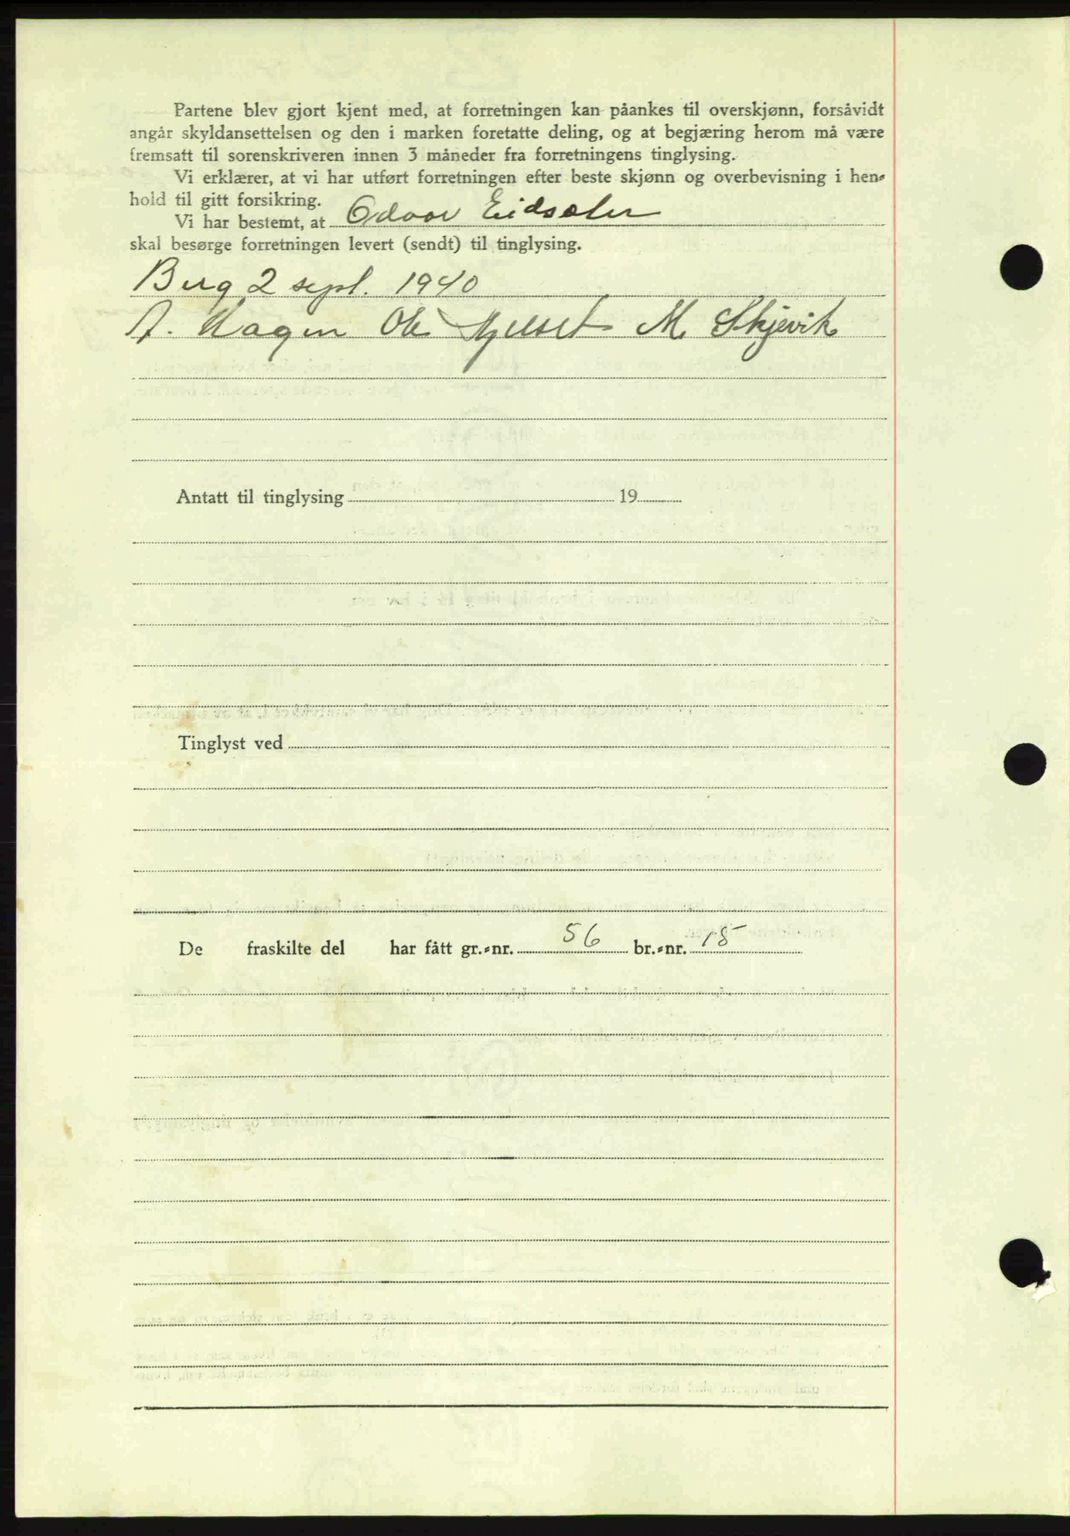 Partene blev gjort kjent med, at forretningen kan påankes til overskjønn, forsåvidt
angår skyldansettelsen og den i marken foretatte deling, og at begjæring herom må være
fremsatt til sorenskriveren innen 3 måneder fra forretningens tinglysing.
Vi erklærer, at vi har utført forretningen efter beste skjønn og overbevisning i hen-
hold til gitt forsikring.
Vi har bestemt, at Odvar Eidsæter
skal besørge forretningen levert (sendt) til tinglysing.
Berg 2 sept. 1940
A. Hagen Ole Hjelset M. Skjevik
Antatt til tinglysing 19
Tinglyst ved
De fraskilte del har fått gr.-nr. 56 br.-nr. 18